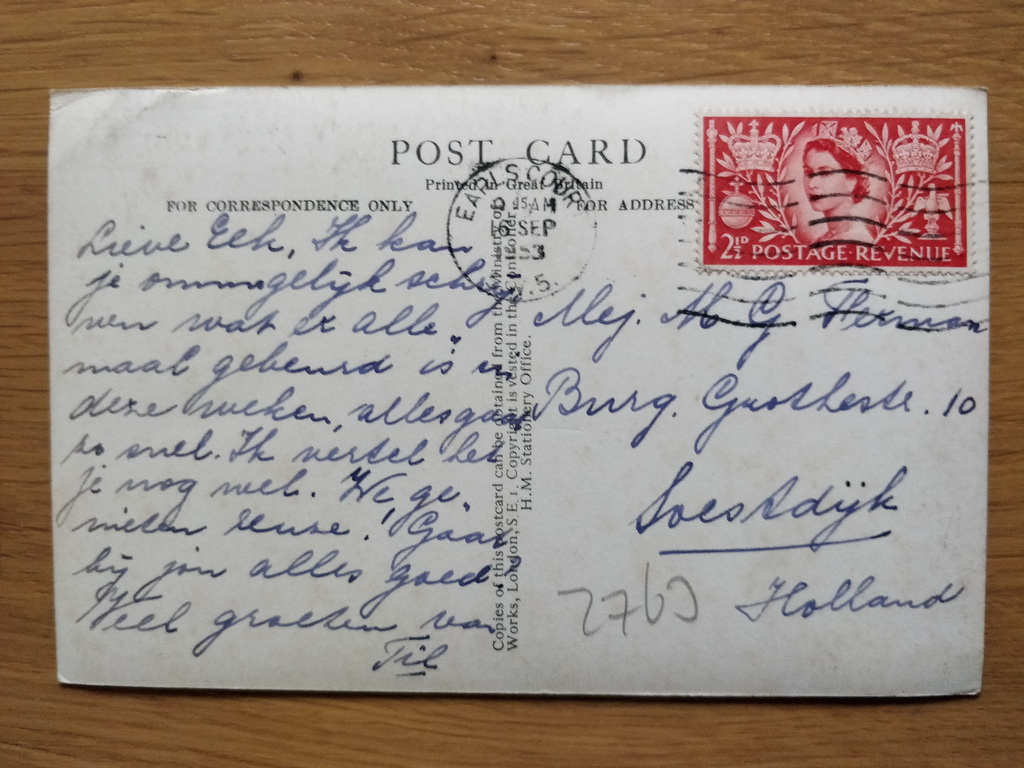 POST CARD
Printed in Great Britain
FOR CORRESPONDENCE ONLY
FOR ADDRESS
EARLS COURT
15 AM
6 SEP
1953
W. 5.
2½D POSTAGE·REVENUE
Lieve Elk, Ik kan
je onmogelijk schrij
ven wat er alle
maal gebeurd is in
deze weken, alles gaat
zo snel. Ik vertel het
je nog wel. We ge
nieten reuze! Gaat
bij jou alles goed?
Veel groeten van
Til
Copies of this postcard can be obtained from the Ministry of
Works, London, S.E.1. Copyright is vested in the Controller
H.M. Stationery Office.
Mej. M G Herman
Burg. Grothestr. 10
Soestdijk
Holland
2763